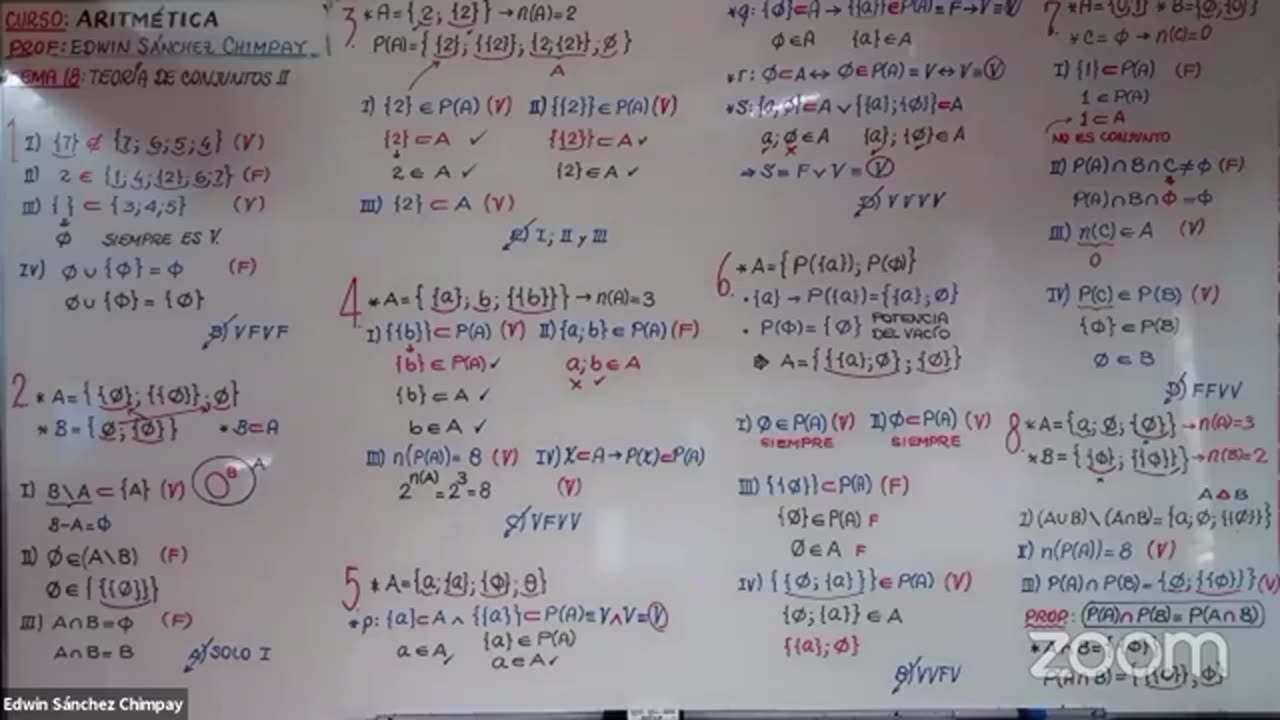 CURSO: ARITMÉTICA
PROF: EDWIN SÁNCHEZ CHIMPAY
TEMA 18: TEORÍA DE CONJUNTOS II
1
I) {7} ⊄ {7; 6; 5; 4} (V)
II) 2 ∈ {1; 4; {2}; 6; 7} (F)
III) { } ⊂ {3;4;5} (V)
φ SIEMPRE ES V.
IV) φ ∪ {φ} = φ (F)
φ ∪ {φ} = {φ}
B) VFVF
2 * A = { {φ}; {{φ}}; φ}
* B = { φ; {φ} } * B⊂A
I) B\A ⊂ {A} (V) B A
B-A=φ
II) φ∈(A\B) (F)
φ∈{ {{φ}}}
III) A∩B=φ (F)
A∩B=B A) SOLO I
3 * A={ 2; {2}} → n(A)=2
P(A)={ {2}; {{2}}; {2;{2}}; φ }
A
I) {2} ∈ P(A) (V) II) {{2}} ∈ P(A) (V)
{2} ⊂ A ✓ {{2}} ⊂ A ✓
2 ∈ A ✓ {2} ∈ A ✓
III) {2} ⊂ A (V)
I; II y III
4 * A = { {a}; b; {{b}}} → n(A)=3
I) {{b}} ⊂ P(A) (V) II) {a;b} ∈ P(A) (F)
{b} ∈ P(A) ✓ a;b ∈ A
{b} ⊂ A ✓ × ✓
b ∈ A ✓
III) n(P(A)) = 8 (V) IV) X⊂A → P(X)⊂P(A)
2^n(A) = 2^3 = 8 (V)
C) VFVV
5 * A={a; {a}; {φ}; θ}
* p: {a}⊂A ∧ {{a}}⊂P(A)≡V∧V≡V
a∈A ✓ {a} ∈ P(A)
a∈A ✓
* q: {φ}⊂A → {{a}}∈P(A)≡F→V≡V
φ∈A {a}∈A
* r: φ⊂A ↔ φ∈P(A) ≡ V↔V≡V
* S: {a;φ}⊂A ∨ {{a};{φ}}⊂A
a; φ ∈ A {a}; {φ} ∈ A
⇒ S≡ F∨V ≡ V
D) VVVV
6. * A={ P({a}); P(φ)}
• {a} → P({a})={{a};φ}
• P(φ)={φ} POTENCIA
DEL VACÍO
⇒ A={{{a};φ}; {φ}}
I) φ∈P(A) (V) II) φ⊂P(A) (V)
SIEMPRE SIEMPRE
III) {{φ}}⊂P(A) (F)
{φ}∈P(A) F
φ∈A F
IV) { {φ; {a}}}∈ P(A) (V)
{φ; {a}} ∈ A
{{a}; φ}
B) VVFV
7.
* C= φ → n(C)=0
I) {1}⊂P(A) (F)
1 ∈ P(A)
1 ⊂ A
NO ES CONJUNTO
II) P(A)∩B∩C≠φ (F)
P(A)∩B∩φ=φ
III) n(C) ∈ A (V)
0
IV) P(C) ∈ P(B) (V)
{φ} ∈ P(B)
φ ∈ B
D) FFVV
8 * A={a; φ; {φ}} → n(A)=3
* B={ {φ}; {{φ}}} → n(B)=2
A△B
I) (A∪B)\(A∩B)={a; φ; {{φ}}}
II) n(P(A))=8 (V)
III) P(A)∩P(B)={φ; {{φ}}} (V)
PROP: P(A)∩P(B)=P(A∩B)
* A∩B={ {φ}}
zoom
Edwin Sánchez Chimpay